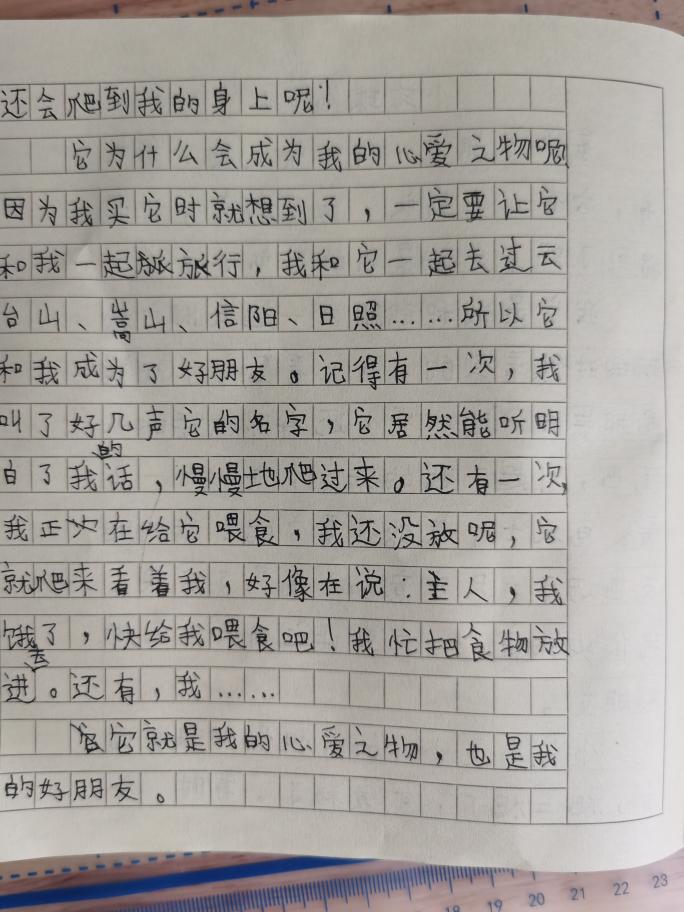 还会爬到我的身上呢！
它为什么会成为我的心爱之物呢
因为我买它时就想到了，一定要让它
和我一起旅行，我和它一起去过云
台山、嵩山、信阳、日照……所以它
和我成为了好朋友。记得有一次，我
叫了好几声它的名字，它居然能听明
白了我的话，慢慢地爬过来。还有一次，
我正在给它喂食，我还没放呢，它
就爬来看着我，好像在说：主人，我
饿了，快给我喂食吧！我忙把食物放
进去。还有，我……
它就是我的心爱之物，也是我
的好朋友。
18 19 20 21 22 23